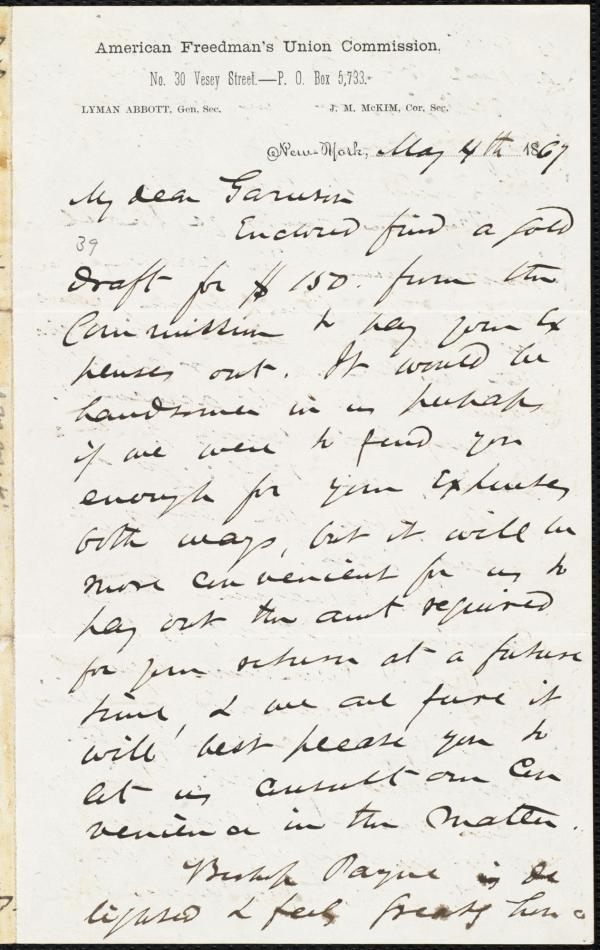 American Freedman's Union Commission,
No. 30 Vesey Street.—P. O. Box 5,733.
LYMAN ABBOTT, Gen. Sec. J. M. McKIM, Cor. Sec.
New-York, May 4th 1867
My dear Garrison
39
Enclosed find a gold
draft for $150. from the
Commission to pay your ex
penses out. It would be
handsomer in us perhaps
if we were to send you
enough for your expenses
both ways, but it will be
more convenient for us to
pay out the amt required
for your return at a future
time, & we are sure it
will best please you to
let us consult our con
venience in the matter.
Bishop Payne is de
lighted & feels greatly hon